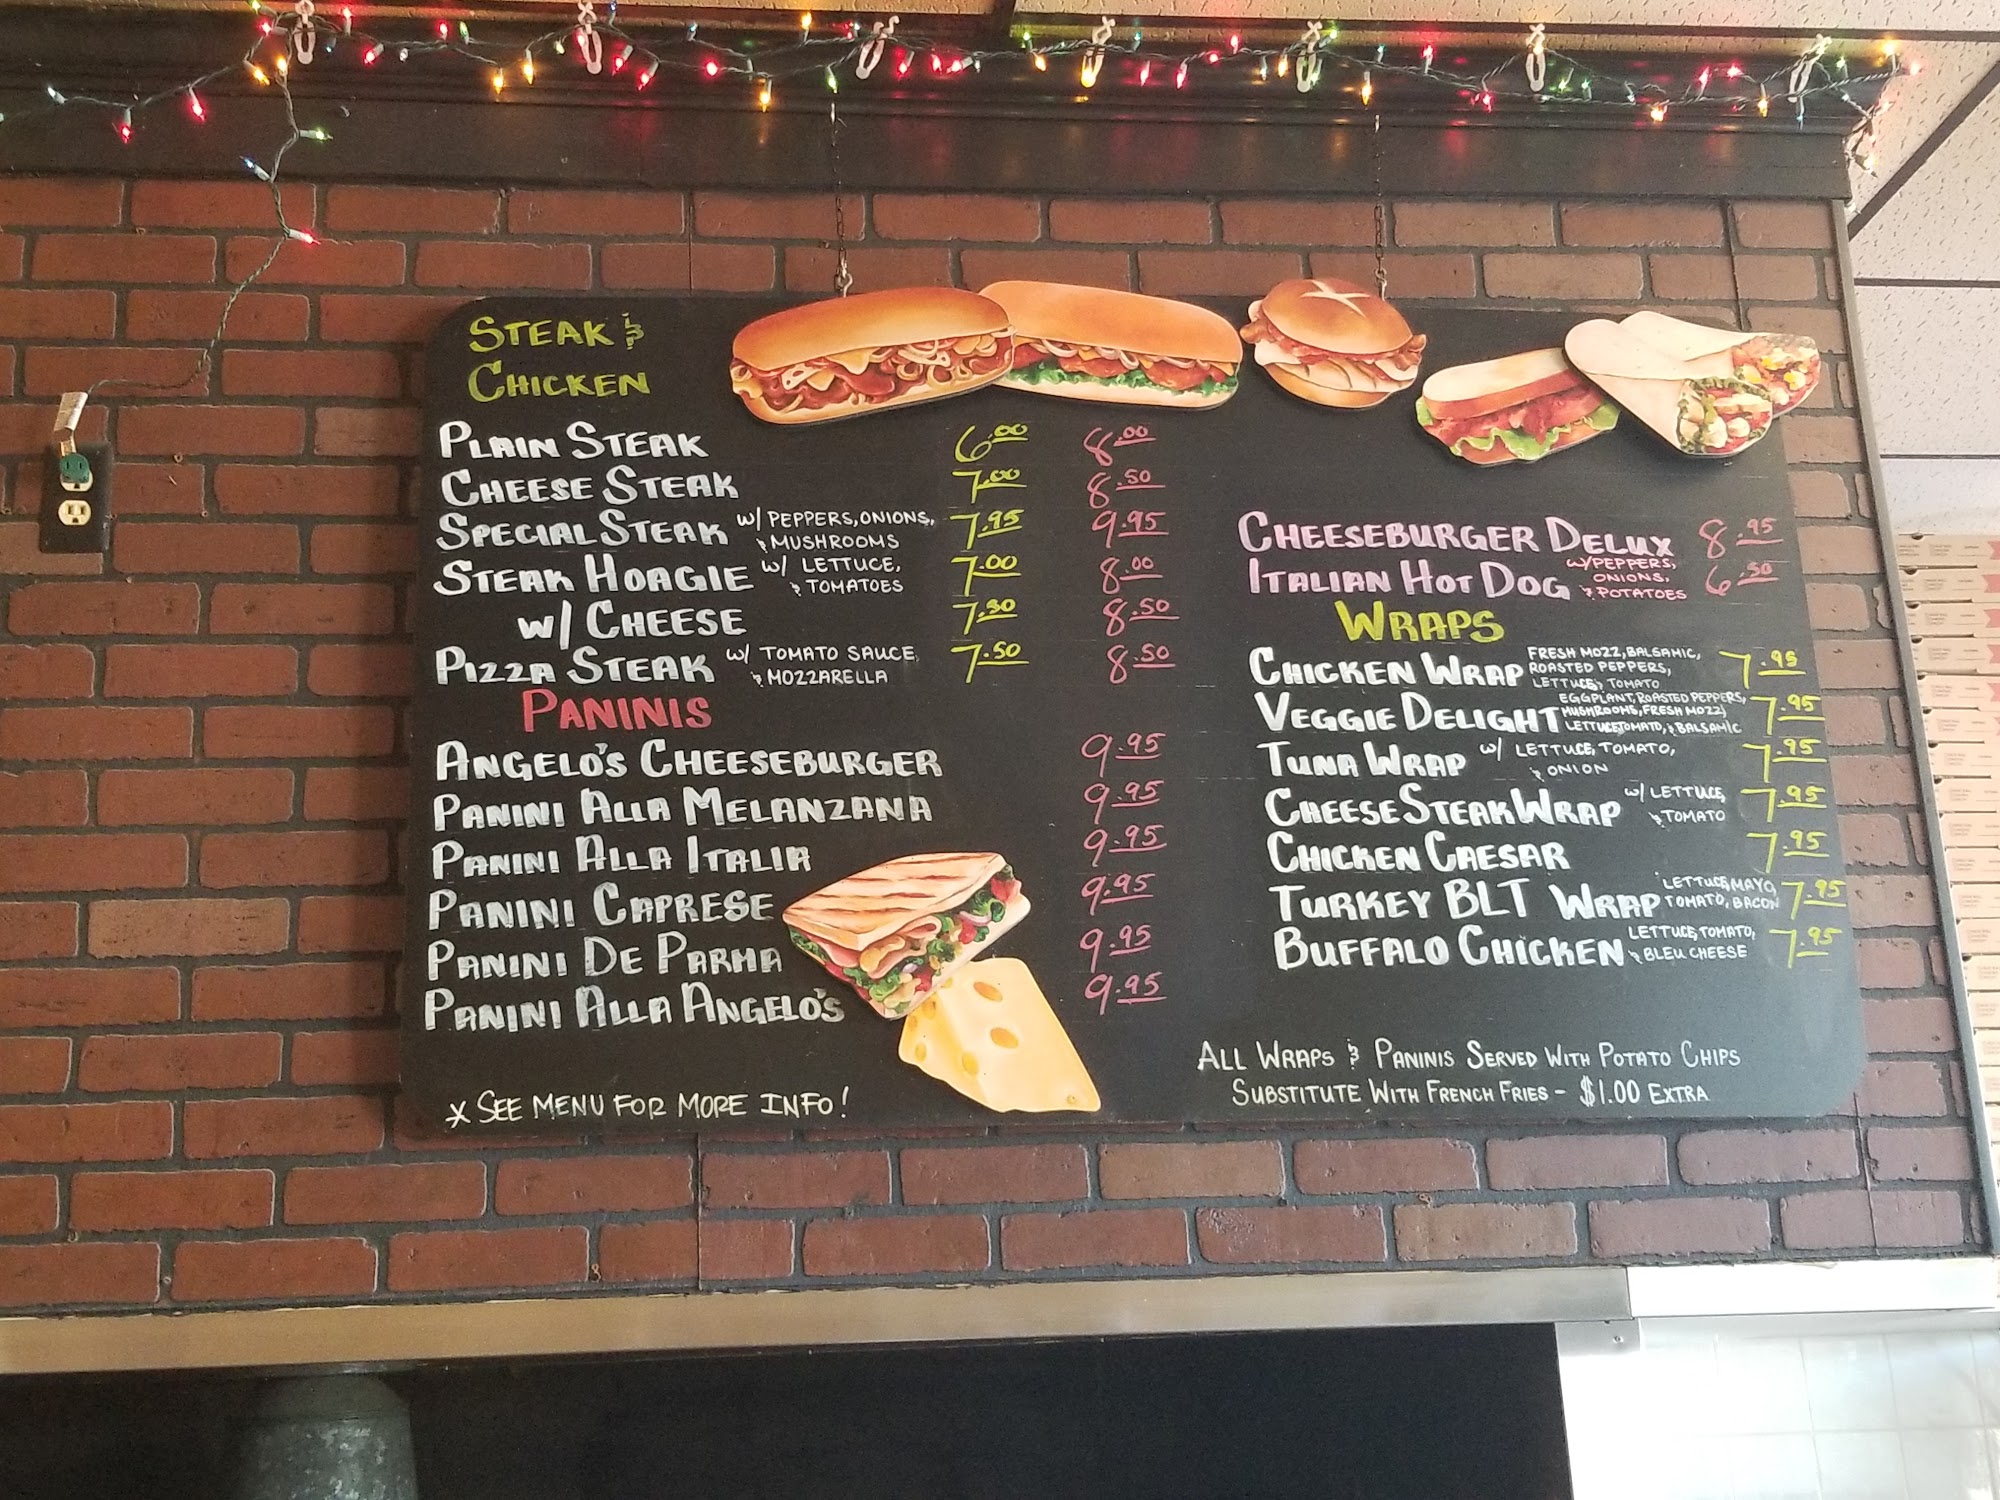 STEAK &
CHICKEN
PLAIN STEAK 6.00 8.00
CHEESE STEAK 7.00 8.50
SPECIAL STEAK w/ PEPPERS, ONIONS, 7.95 9.95
& MUSHROOMS
STEAK HOAGIE w/ LETTUCE, 7.00 8.00
& TOMATOES
w/ CHEESE 7.50 8.50
PIZZA STEAK w/ TOMATO SAUCE 7.50 8.50
& MOZZARELLA
PANINIS
ANGELO'S CHEESEBURGER 9.95
PANINI ALLA MELANZANA 9.95
PANINI ALLA ITALIA 9.95
PANINI CAPRESE 9.95
PANINI DE PARMA 9.95
PANINI ALLA ANGELO'S 9.95
* SEE MENU FOR MORE INFO!
CHEESEBURGER DELUX 8.95
ITALIAN HOT DOG w/ PEPPERS, 6.50
ONIONS,
& POTATOES
WRAPS
CHICKEN WRAP FRESH MOZZ, BALSAMIC, 7.95
ROASTED PEPPERS,
LETTUCE & TOMATO
VEGGIE DELIGHT EGGPLANT, ROASTED PEPPERS, 7.95
MUSHROOMS, FRESH MOZZ,
LETTUCE, TOMATO, & BALSAMIC
TUNA WRAP w/ LETTUCE, TOMATO, 7.95
& ONION
CHEESE STEAK WRAP w/ LETTUCE, 7.95
& TOMATO
CHICKEN CAESAR 7.95
TURKEY BLT WRAP LETTUCE, MAYO, 7.95
TOMATO, BACON
BUFFALO CHICKEN LETTUCE, TOMATO, 7.95
& BLEU CHEESE
ALL WRAPS & PANINIS SERVED WITH POTATO CHIPS
SUBSTITUTE WITH FRENCH FRIES - $1.00 EXTRA